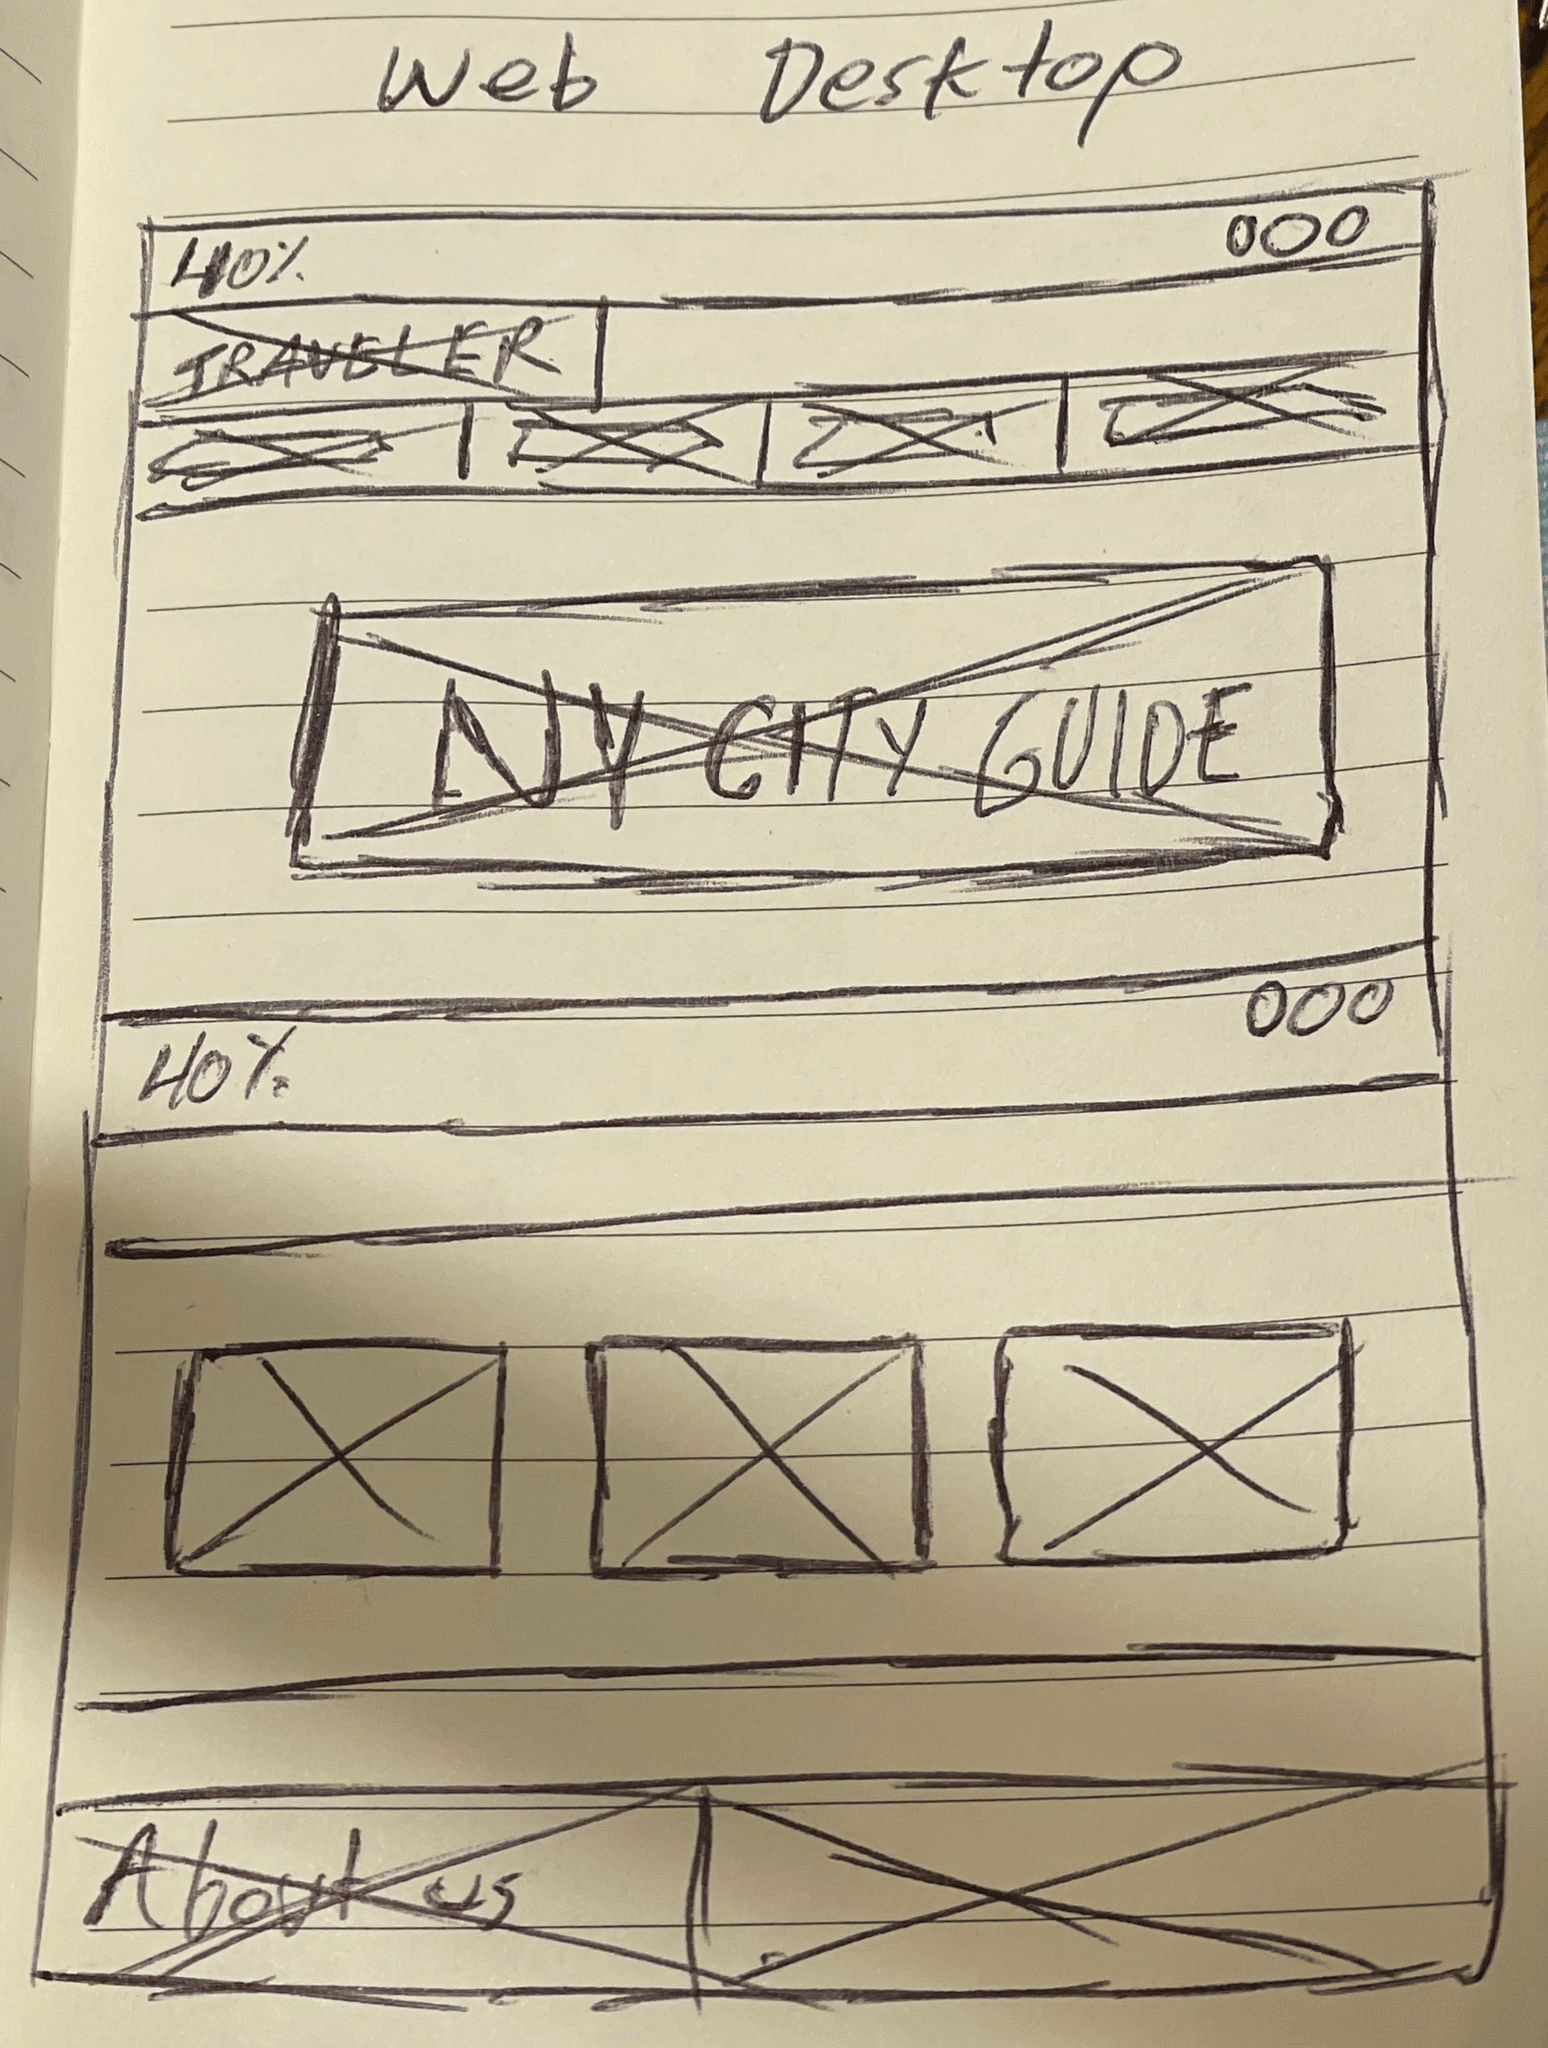 Web Desktop
40% 000
TRAVELER
NY CITY GUIDE
40% 000
About us